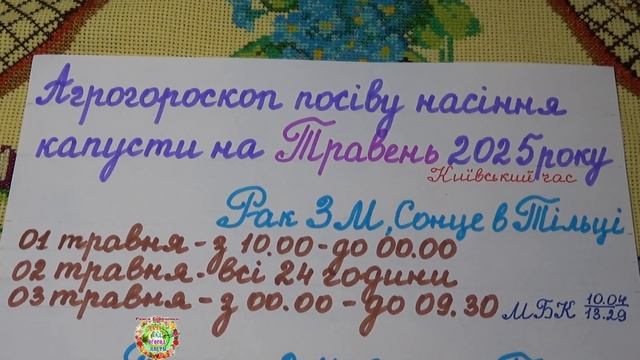 Агрогороскоп посіву насіння
капусти на Травень 2025 року
Київський час
Рак ЗМ, Сонце в Тільці
01 травня - з 10.00 - до 00.00
02 травня - всі 24 години
03 травня - з 00.00 - до 09.30 МБК 10.04
13.29